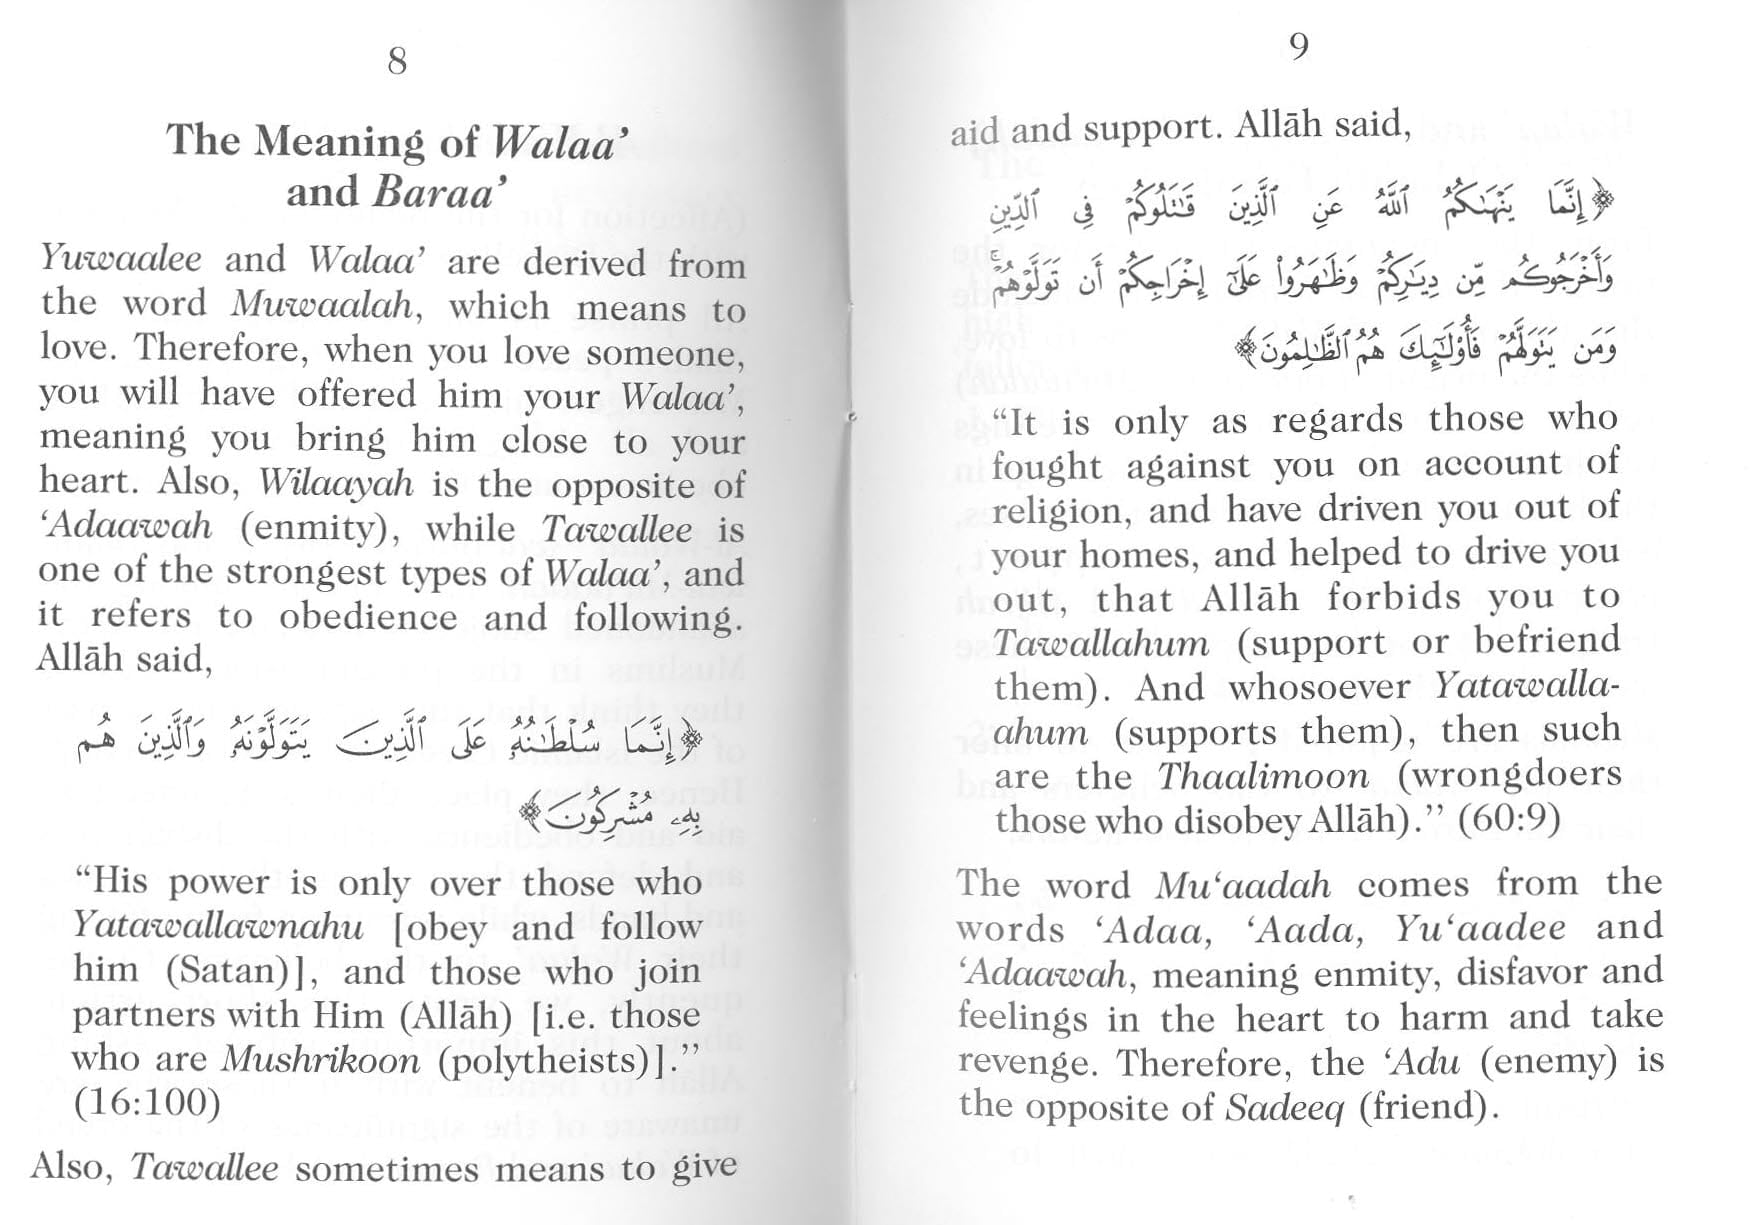 8
The Meaning of Walaa’
and Baraa’
Yuwaalee and Walaa’ are derived from
the word Muwaalah, which means to
love. Therefore, when you love someone,
you will have offered him your Walaa’,
meaning you bring him close to your
heart. Also, Wilaayah is the opposite of
‘Adaawah (enmity), while Tawallee is
one of the strongest types of Walaa’, and
it refers to obedience and following.
Allāh said,
﴿إِنَّمَا سُلْطَـٰنُهُۥ عَلَى ٱلَّذِينَ يَتَوَلَّوْنَهُۥ وَٱلَّذِينَ هُم
بِهِۦ مُشْرِكُونَ﴾
“His power is only over those who
Yatawallawnahu [obey and follow
him (Satan)], and those who join
partners with Him (Allāh) [i.e. those
who are Mushrikoon (polytheists)].”
(16:100)
Also, Tawallee sometimes means to give
9
aid and support. Allāh said,
﴿إِنَّمَا يَنْهَىٰكُمُ ٱللَّهُ عَنِ ٱلَّذِينَ قَـٰتَلُوكُمْ فِى ٱلدِّينِ
وَأَخْرَجُوكُم مِّن دِيَـٰرِكُمْ وَظَـٰهَرُوا۟ عَلَىٰٓ إِخْرَاجِكُمْ أَن تَوَلَّوْهُمْ ۚ
وَمَن يَتَوَلَّهُمْ فَأُو۟لَـٰٓئِكَ هُمُ ٱلظَّـٰلِمُونَ﴾
“It is only as regards those who
fought against you on account of
religion, and have driven you out of
your homes, and helped to drive you
out, that Allāh forbids you to
Tawallahum (support or befriend
them). And whosoever Yatawalla-
ahum (supports them), then such
are the Thaalimoon (wrongdoers
those who disobey Allāh).” (60:9)
The word Mu‘aadah comes from the
words ‘Adaa, ‘Aada, Yu‘aadee and
‘Adaawah, meaning enmity, disfavor and
feelings in the heart to harm and take
revenge. Therefore, the ‘Adu (enemy) is
the opposite of Sadeeq (friend).